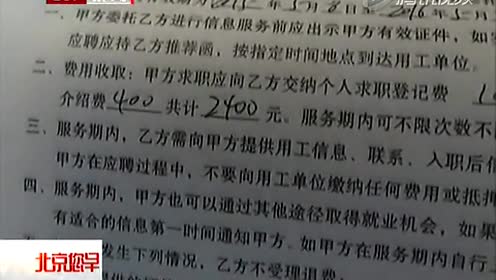 一、甲方委托乙方进行信息服务前应出示甲方有效证件，如
应聘应持乙方推荐函，按指定时间地点到达用工单位。
二、费用收取：甲方求职应向乙方交纳个人求职登记费
介绍费400 共计2400元。服务期内可不限次数不
三、服务期内，乙方需向甲方提供用工信息、联系、入职后
甲方在应聘过程中，不要向用工单位缴纳任何费用或抵押
四、服务期内，甲方也可以通过其他途径取得就业机会，如果
有适合的信息第一时间通知甲方。如甲方在服务期内自行
发生下列情况，乙方不受理退费
北京您早